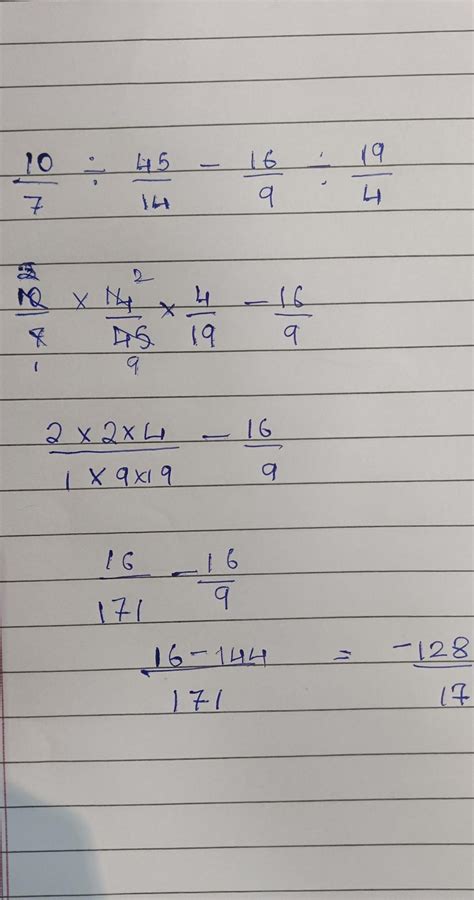 10/7 ÷ 45/14 - 16/9 ÷ 19/4
2 2
10/7 × 14/45 × 4/19 - 16/9
1 9
2×2×4/1×9×19 - 16/9
16/171 - 16/9
16-144/171 = -128/17